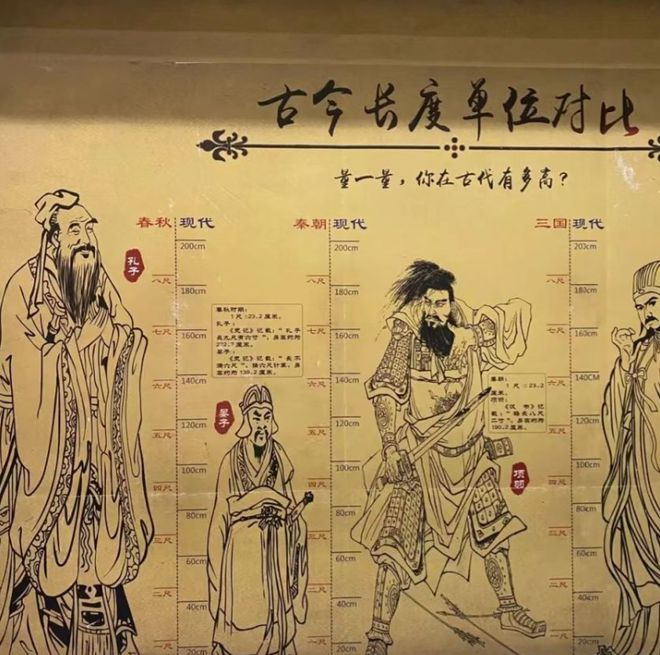 古今长度单位对比
量一量，你在古代有多高？
春秋 现代
200cm
八尺
180cm
七尺
160cm
六尺
140cm
五尺
120cm
100cm
四尺
80cm
三尺
60cm
二尺
40cm
一尺
20cm
孔子
春秋时期：
1尺≈23.2厘米。
孔子：
《史记》记载：“孔子
长九尺有六寸”，身高约为
222.7厘米。
晏子：
《史记》记载：“长不
满六尺”，按六尺计算，身
高约为139.2厘米。
晏子
秦朝 现代
200cm
八尺
180cm
七尺
160cm
六尺
140cm
五尺
120cm
100cm
四尺
80cm
三尺
60cm
二尺
40cm
一尺
20cm
秦朝：
1尺≈23.2
厘米。
项羽：
《汉书》记
载：“籍长八尺
二寸”，身高约为
190.2厘米。
项羽
三国 现代
200cm
八尺
180cm
七尺
160cm
140CM
六尺
五尺
120cm
100cm
四尺
80cm
三尺
60cm
二尺
40cm
一尺
20cm